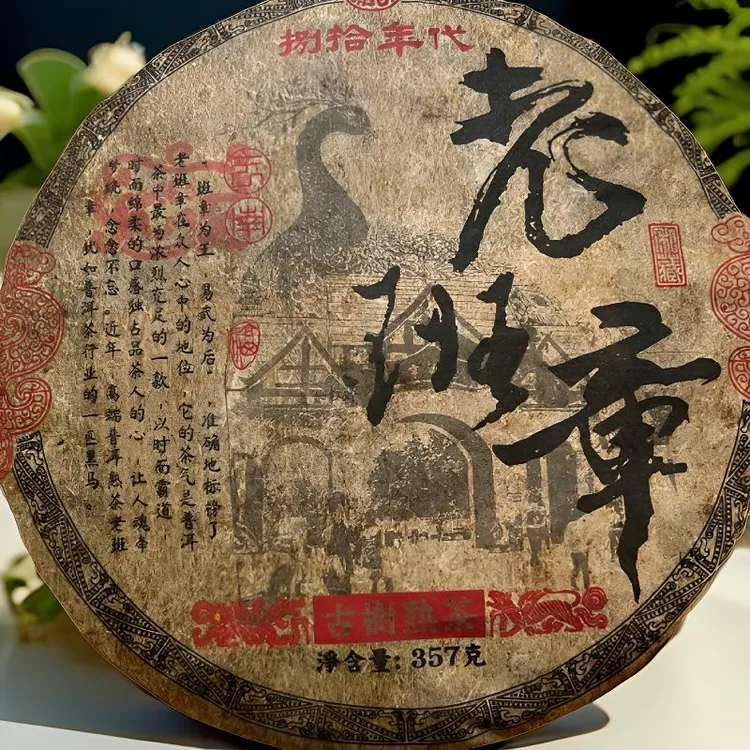 捌拾年代
老班章
“班章为王，易武为后”，准确地标榜了
老班章在众人心中的地位，它的茶气是普洱
茶中最为浓烈充足的一款，以时而霸道，
时而绵柔的口感独占品茶人的心，让人魂牵
梦绕，念念不忘。近年，高端普洱熟茶老班
章犹如普洱茶行业的一匹黑马。
云南
古树熟茶
淨含量: 357克